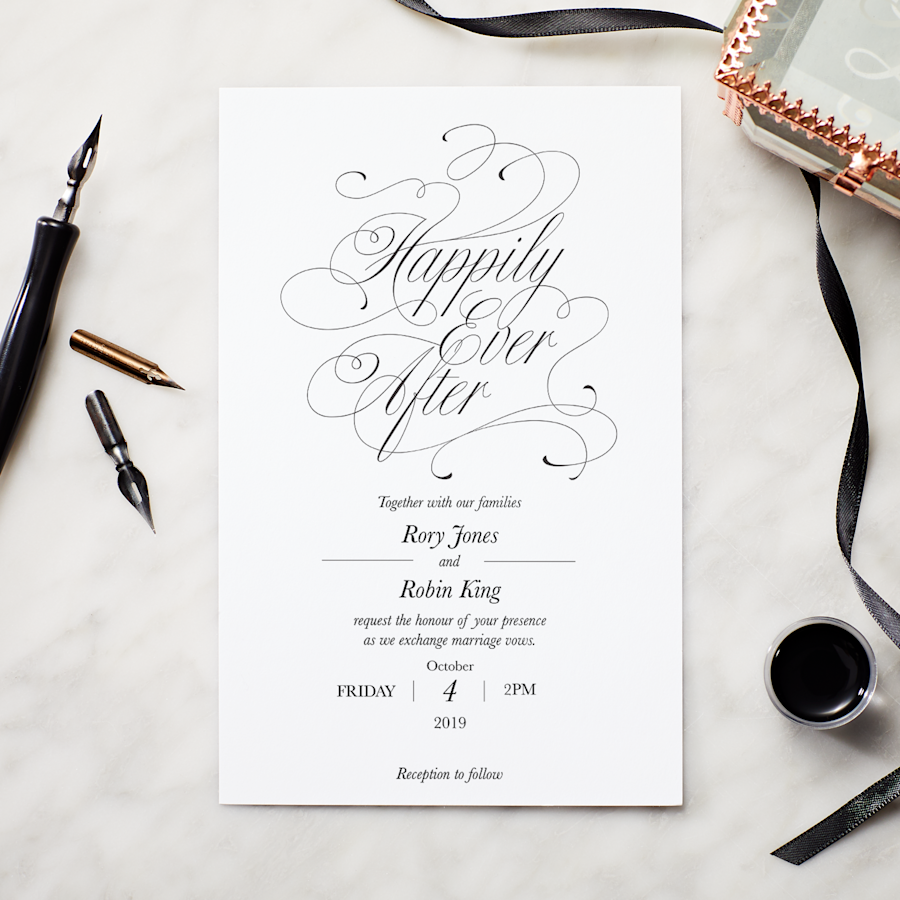 Happily
Ever
After
Together with our families
Rory Jones
and
Robin King
request the honour of your presence
as we exchange marriage vows.
October
FRIDAY | 4 | 2PM
2019
Reception to follow